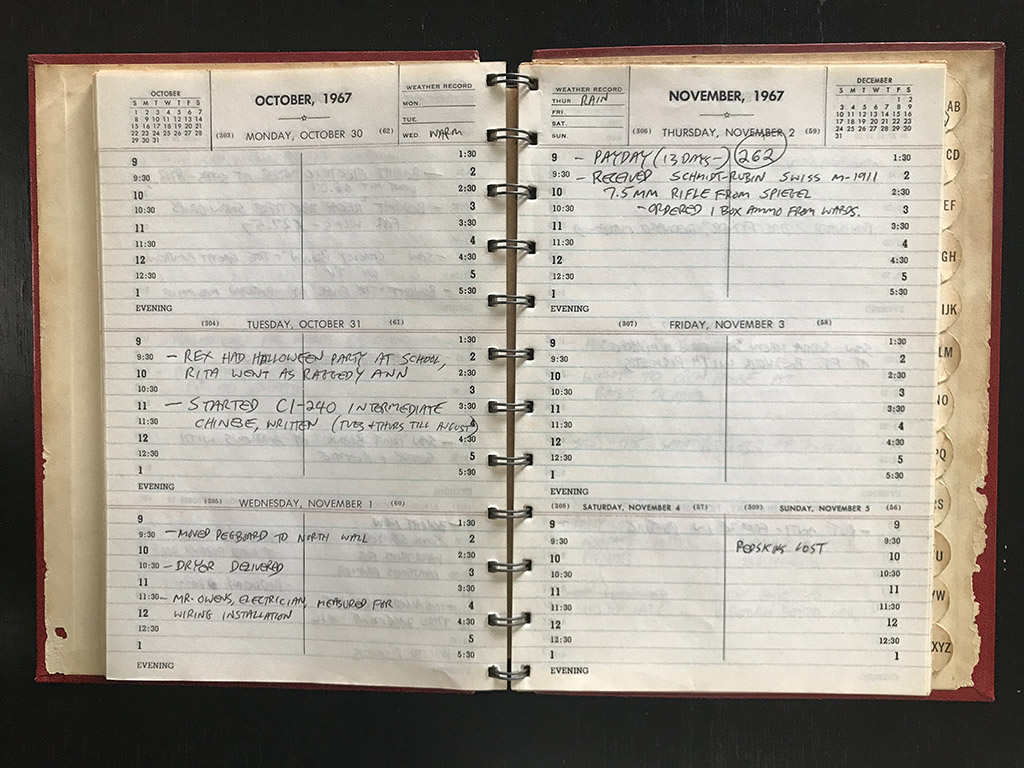 OCTOBER
S M T W T F S
1 2 3 4 5 6 7
8 9 10 11 12 13 14
15 16 17 18 19 20 21
22 23 24 25 26 27 28
29 30 31
OCTOBER, 1967
WEATHER RECORD
MON.
TUE.
WED. WARM
(303) MONDAY, OCTOBER 30 (62)
9 1:30
9:30 2
10 2:30
10:30 3
11 3:30
11:30 4
12 4:30
12:30 5
1 5:30
EVENING
(304) TUESDAY, OCTOBER 31 (61)
9 1:30
9:30 – REX HAD HALLOWEEN PARTY AT SCHOOL, 2
10 RITA WENT AS RAGGEDY ANN 2:30
10:30 3
11 – STARTED CI-240 INTERMEDIATE 3:30
11:30 CHINESE, WRITTEN (TUES & THURS TILL AUGUST) 4
12 4:30
12:30 5
1 5:30
EVENING
(305) WEDNESDAY, NOVEMBER 1 (60)
9 1:30
9:30 – MOVED PEGBOARD TO NORTH WALL 2
10 2:30
10:30 – DRYER DELIVERED 3
11 3:30
11:30 – MR. OWENS, ELECTRICIAN, MEASURED FOR 4
12 WIRING INSTALLATION 4:30
12:30 5
1 5:30
EVENING
WEATHER RECORD
THUR. RAIN
FRI.
SAT.
SUN.
NOVEMBER, 1967
DECEMBER
S M T W T F S
1 2
3 4 5 6 7 8 9
10 11 12 13 14 15 16
17 18 19 20 21 22 23
24 25 26 27 28 29 30
31
(306) THURSDAY, NOVEMBER 2 (59)
9 – PAYDAY (13 DAYS–) 262 1:30
9:30 – RECEIVED SCHMIDT-RUBIN SWISS M-1911 2
10 7.5MM RIFLE FROM SPIEGEL 2:30
10:30 – ORDERED 1 BOX AMMO FROM WARDS. 3
11 3:30
11:30 4
12 4:30
12:30 5
1 5:30
EVENING
(307) FRIDAY, NOVEMBER 3 (58)
9 1:30
9:30 2
10 2:30
10:30 3
11 3:30
11:30 4
12 4:30
12:30 5
1 5:30
EVENING
(308) SATURDAY, NOVEMBER 4 (57) (309) SUNDAY, NOVEMBER 5 (56)
9 9
9:30 REDSKINS LOST 9:30
10 10
10:30 10:30
11 11
11:30 11:30
12 12
12:30 12:30
1 1
EVENING
AB
CD
EF
GH
IJK
LM
NO
PQ
RS
TU
VW
XYZ